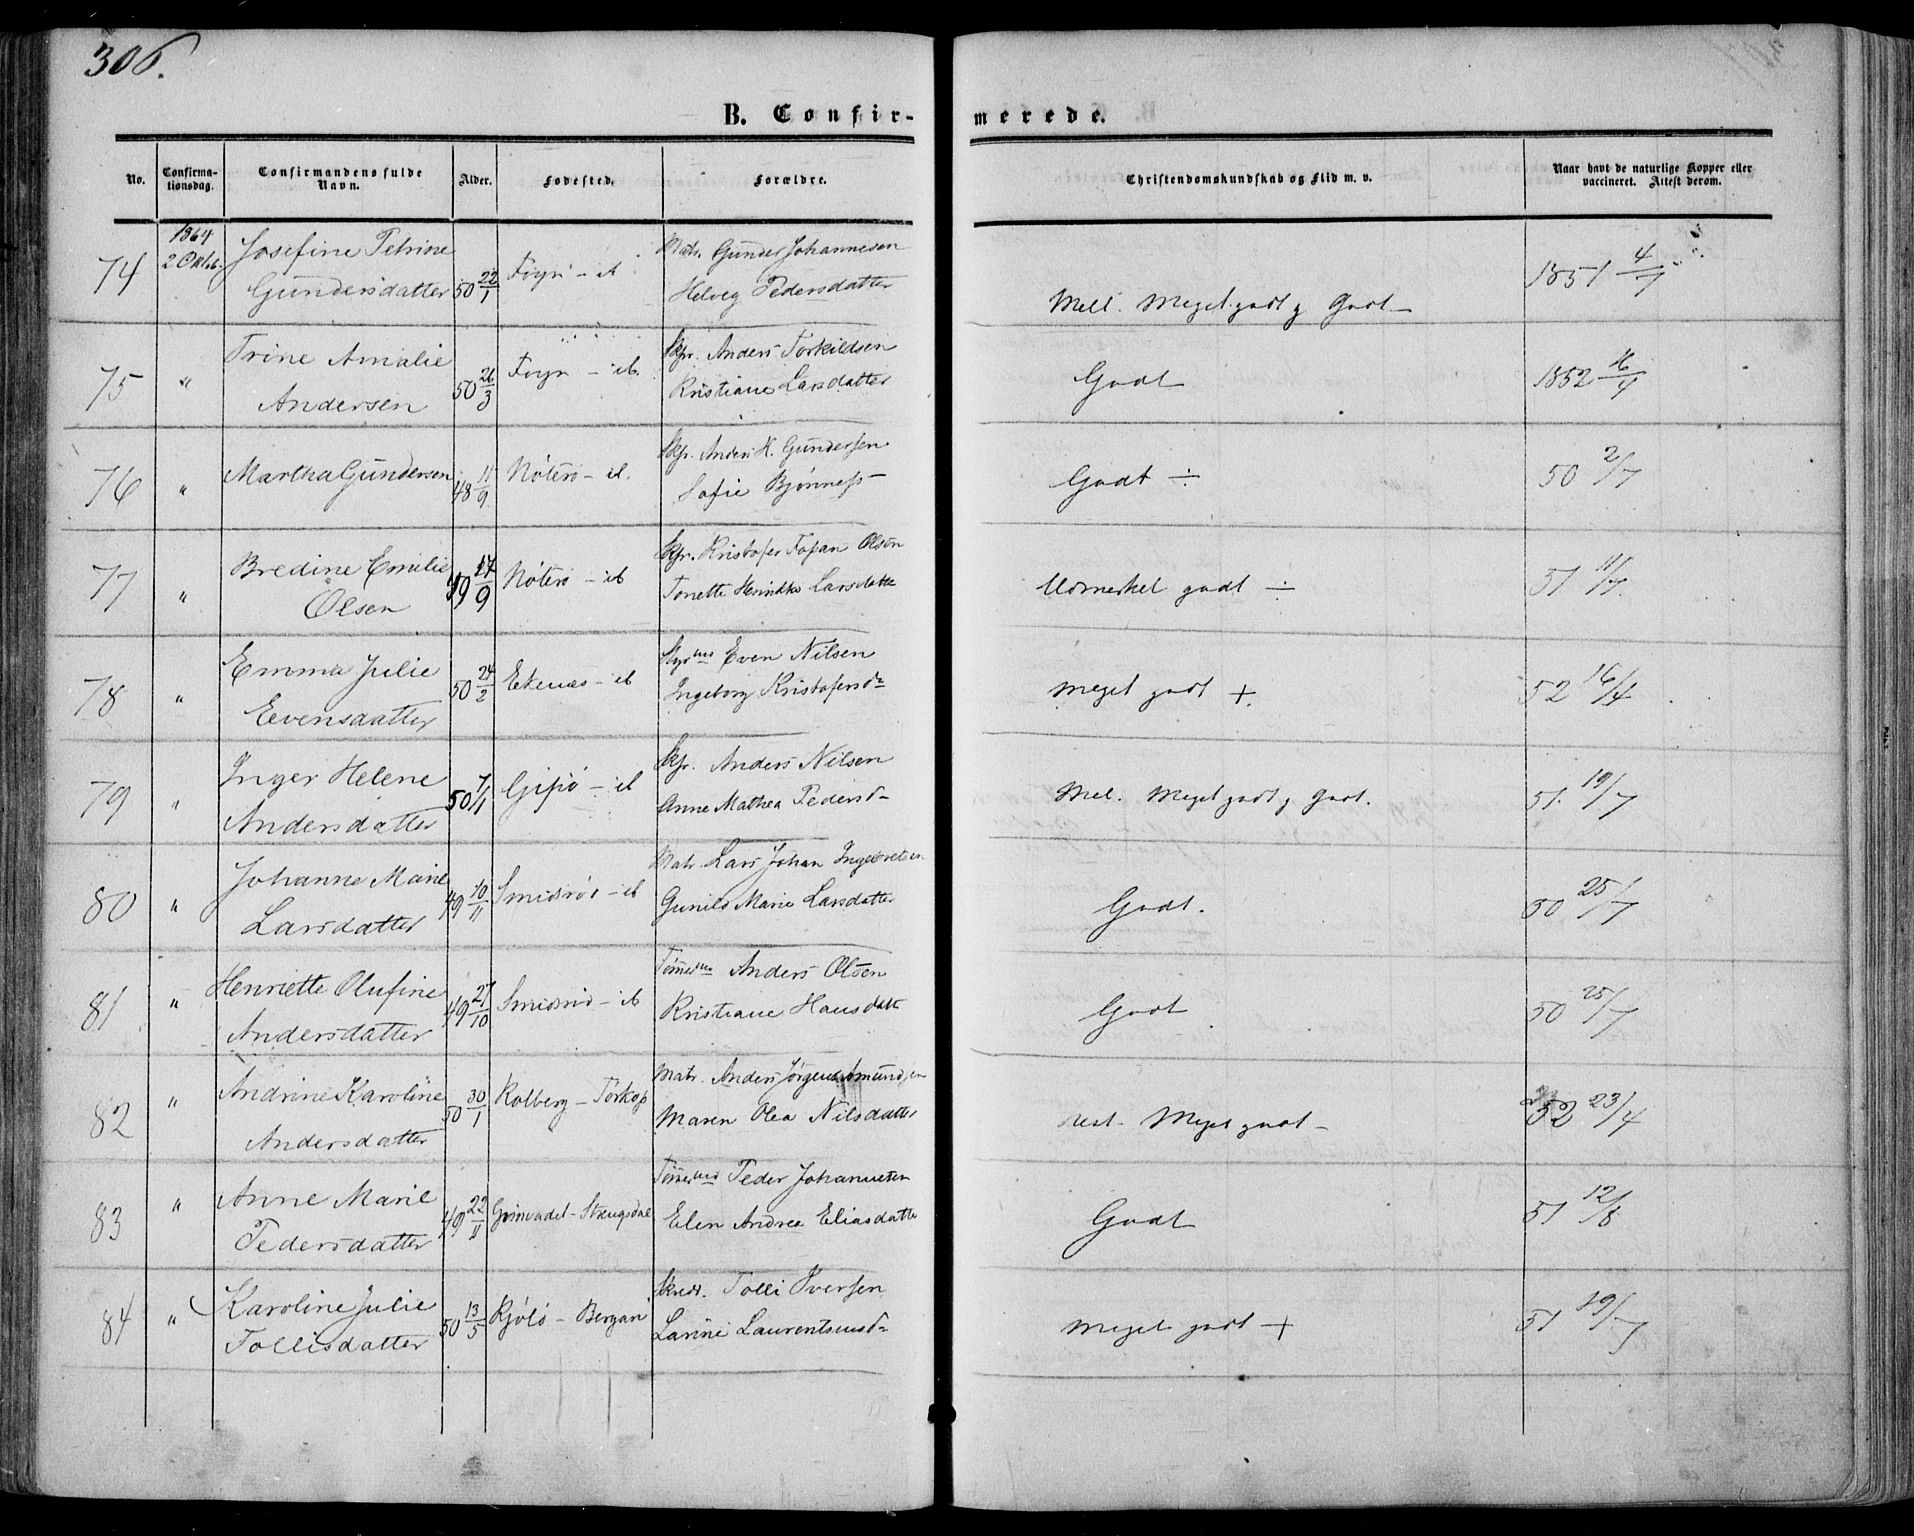 306.
B. Confir-
merede.
No.
Confirma-
tionsdag.
Confirmandens fulde
Navn.
Alder.
Fødested.
Forældre.
Christendomskundskab og Flid m. v.
Naar havt de naturlige Kopper eller
vaccineret. Attest derom.
74
1864
2 Oktb.
Josefine Petrine
Gundersdatter
50 22/1
Føyn - ib
Matr. Gunder Johannesen
Helveg Pedersdatter
Mell. Meget godt og Godt
1851 4/7
75
"
Trine Amalie
Andersen
50 26/3
Føyn - ib.
Skpr. Anders Torkildsen
Kristiane Larsdatter
Godt
1852 16/4
76
"
Martha Gundersen
48 11/9
Nøterø - ib.
Skpr. Anders H. Gundersen
Sofie Bjønness
Godt ÷
50 2/7
77
"
Bredine Emilie
Olsen
49 17/9
Nøterø - ib
Skpr. Kristofer Fopan Olsen
Tonette Henrikke Larsdatte
Udmerket godt ÷
51 11/7
78
"
Emma Julie
Evensdatter
50 24/2
Ekenæs - ib
Styrmd Even Nilsen
Ingeborg Kristofersd-
meget godt +
52 16/4
79
"
Inger Helene
Andersdatter
50 7/1
Gipø - ib
Skpr. Anders Nilsen
Anne Mathea Pedersd-
Mel. Meget godt og Godt.
51. 19/7
80
"
Johanne Marie
Larsdatter
49 10/11
Smidsrød - ib
Matr. Lars Johan Ingebretsen
Gunild Marie Larsdatter
Godt.
50 25/7
81
"
Henriette Olufine
Andersdatter
49 27/10
Smidsrød - ib
Tømmermd Anders Olsen
Kristiane Hansdatt
Godt
50 25/7
82
"
Andrine Karoline
Andersdatter
50 30/1
Kolberg - Torkop
Matr. Anders Jörgen Amundsen
Maren Olea Nilsdatter
Meget godt -
52 23/4
83
"
Anne Marie
Pedersdatter
49 22/11
Grimvadet - Stængsdal
Tømmermd Peder Johannesen
Elen Andrea Eliasdatte
Godt
51 12/8
84
"
Karoline Julie
Tollisdatter
50 13/5
Kjølø - Bergan
Skrædr. Tolli Iversen
Larine Laurentsensd-
Meget godt +
51 19/7